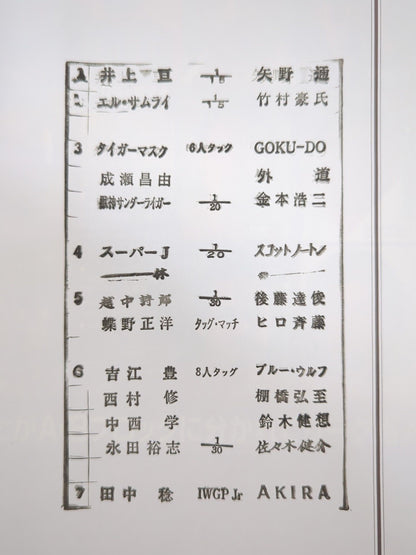 1 井上亘 1/15 矢野通
2 エル・サムライ 1/15 竹村豪氏
3 タイガーマスク 6人タック GOKU-DO
成瀬昌由 外道
獣神サンダーライガー 1/20 金本浩二
4 スーパーJ 1/20 スコットノートン
休
5 越中詩郎 1/30 後藤達俊
蝶野正洋 タッグ・マッチ ヒロ斉藤
6 吉江豊 8人タッグ ブルー・ウルフ
西村修 棚橋弘至
中西学 鈴木健想
永田裕志 1/30 佐々木健介
7 田中稔 IWGP Jr AKIRA